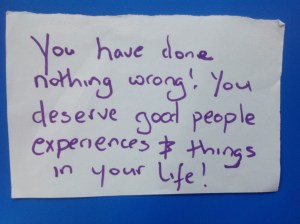 You have done
nothing wrong! You
deserve good people
experiences & things
in your life!